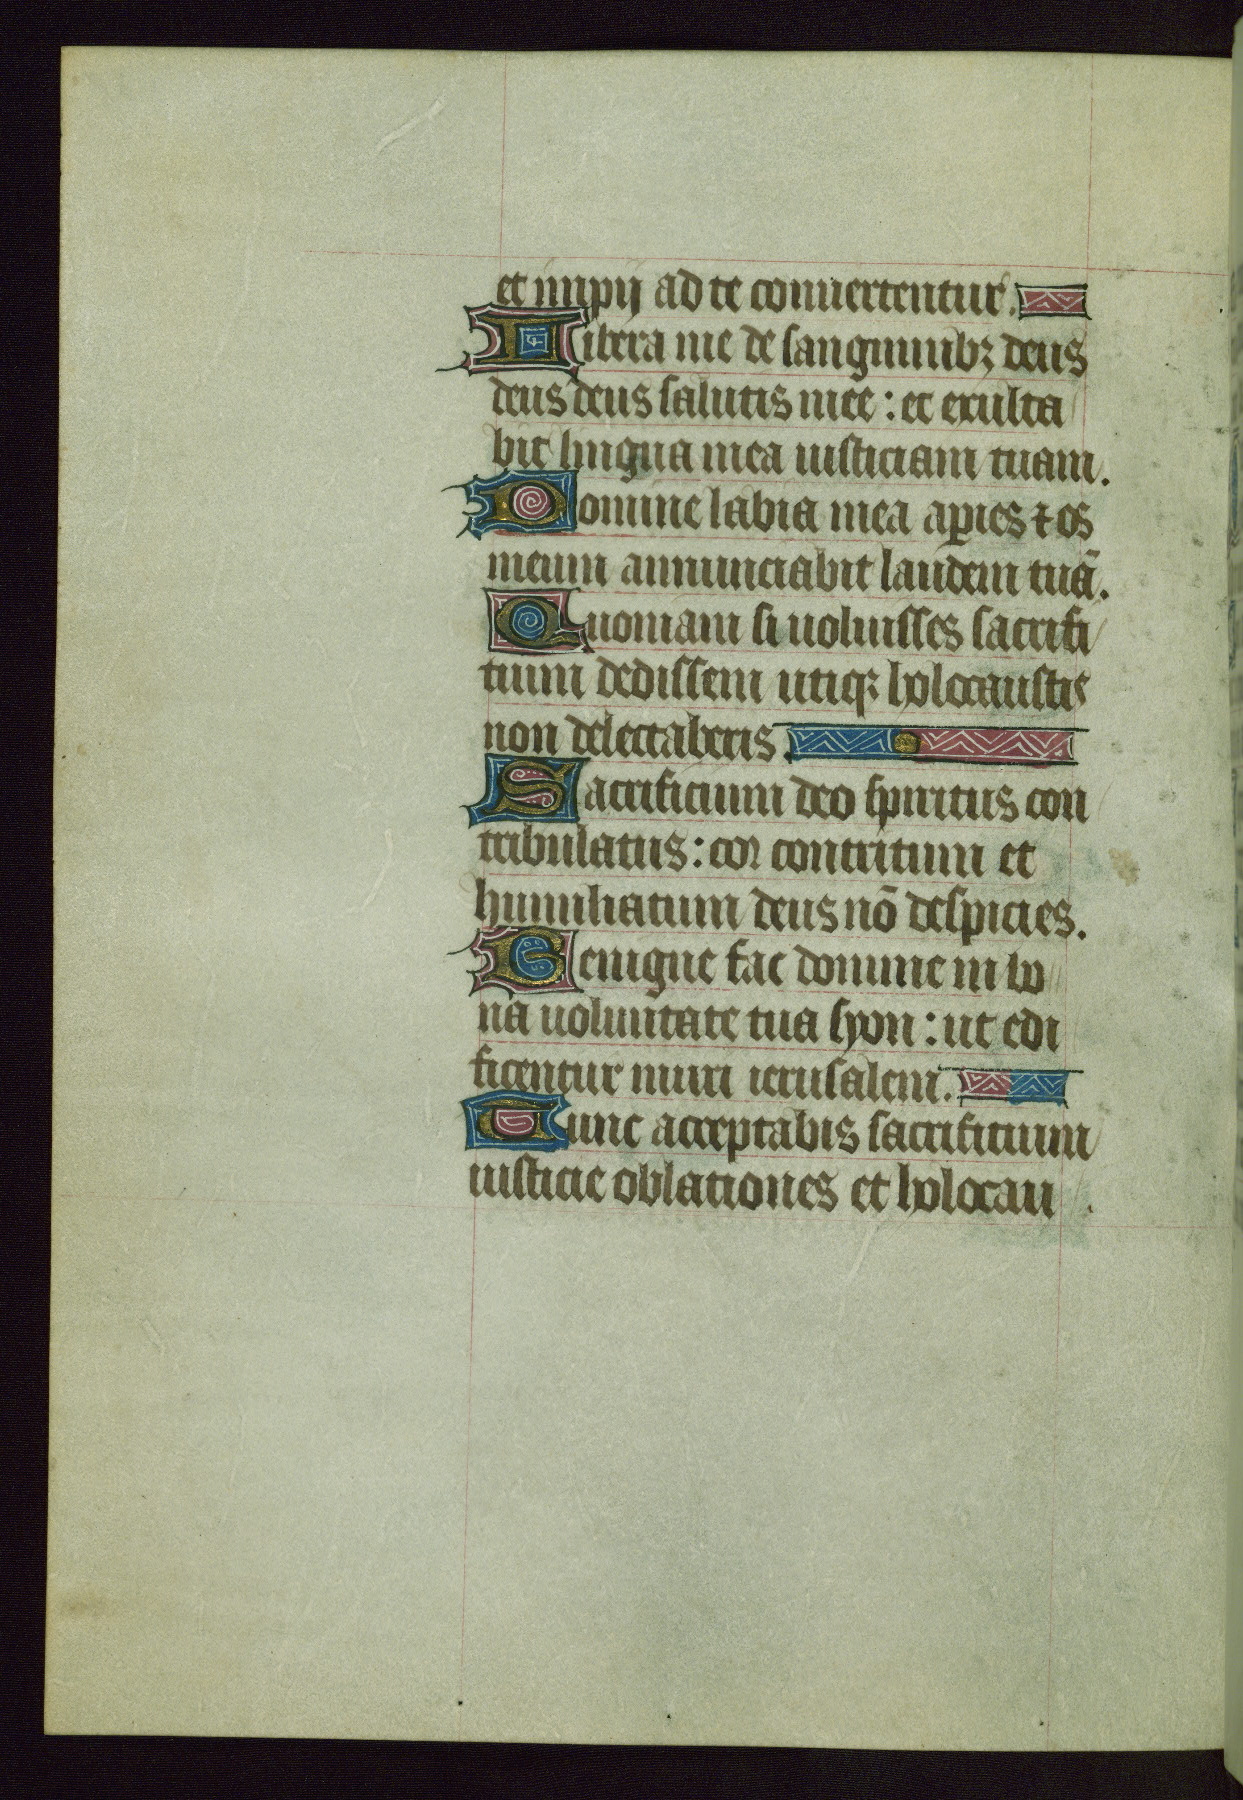 et impij ad te conuertentur.
Libera me de sanguinibꝫ deus
deus deus salutis mee : et exulta
bit lingua mea iusticiam tuam.
Domine labia mea aꝑies ⁊ os
meum annunciabit laudem tuā.
Quoniam si uoluisses sacrifi
tium dedissem utiqꝫ holocaustis
non delectaberis.
Sacrificium deo spiritus con
tribulatus : cor contritum et
humiliatum deus nō despicies.
Benigne fac domine in bo
na uoluntate tua syon : ut edi
ficentur muri ierusalem.
Tunc acceptabis sacrificium
iusticie oblationes et holocau